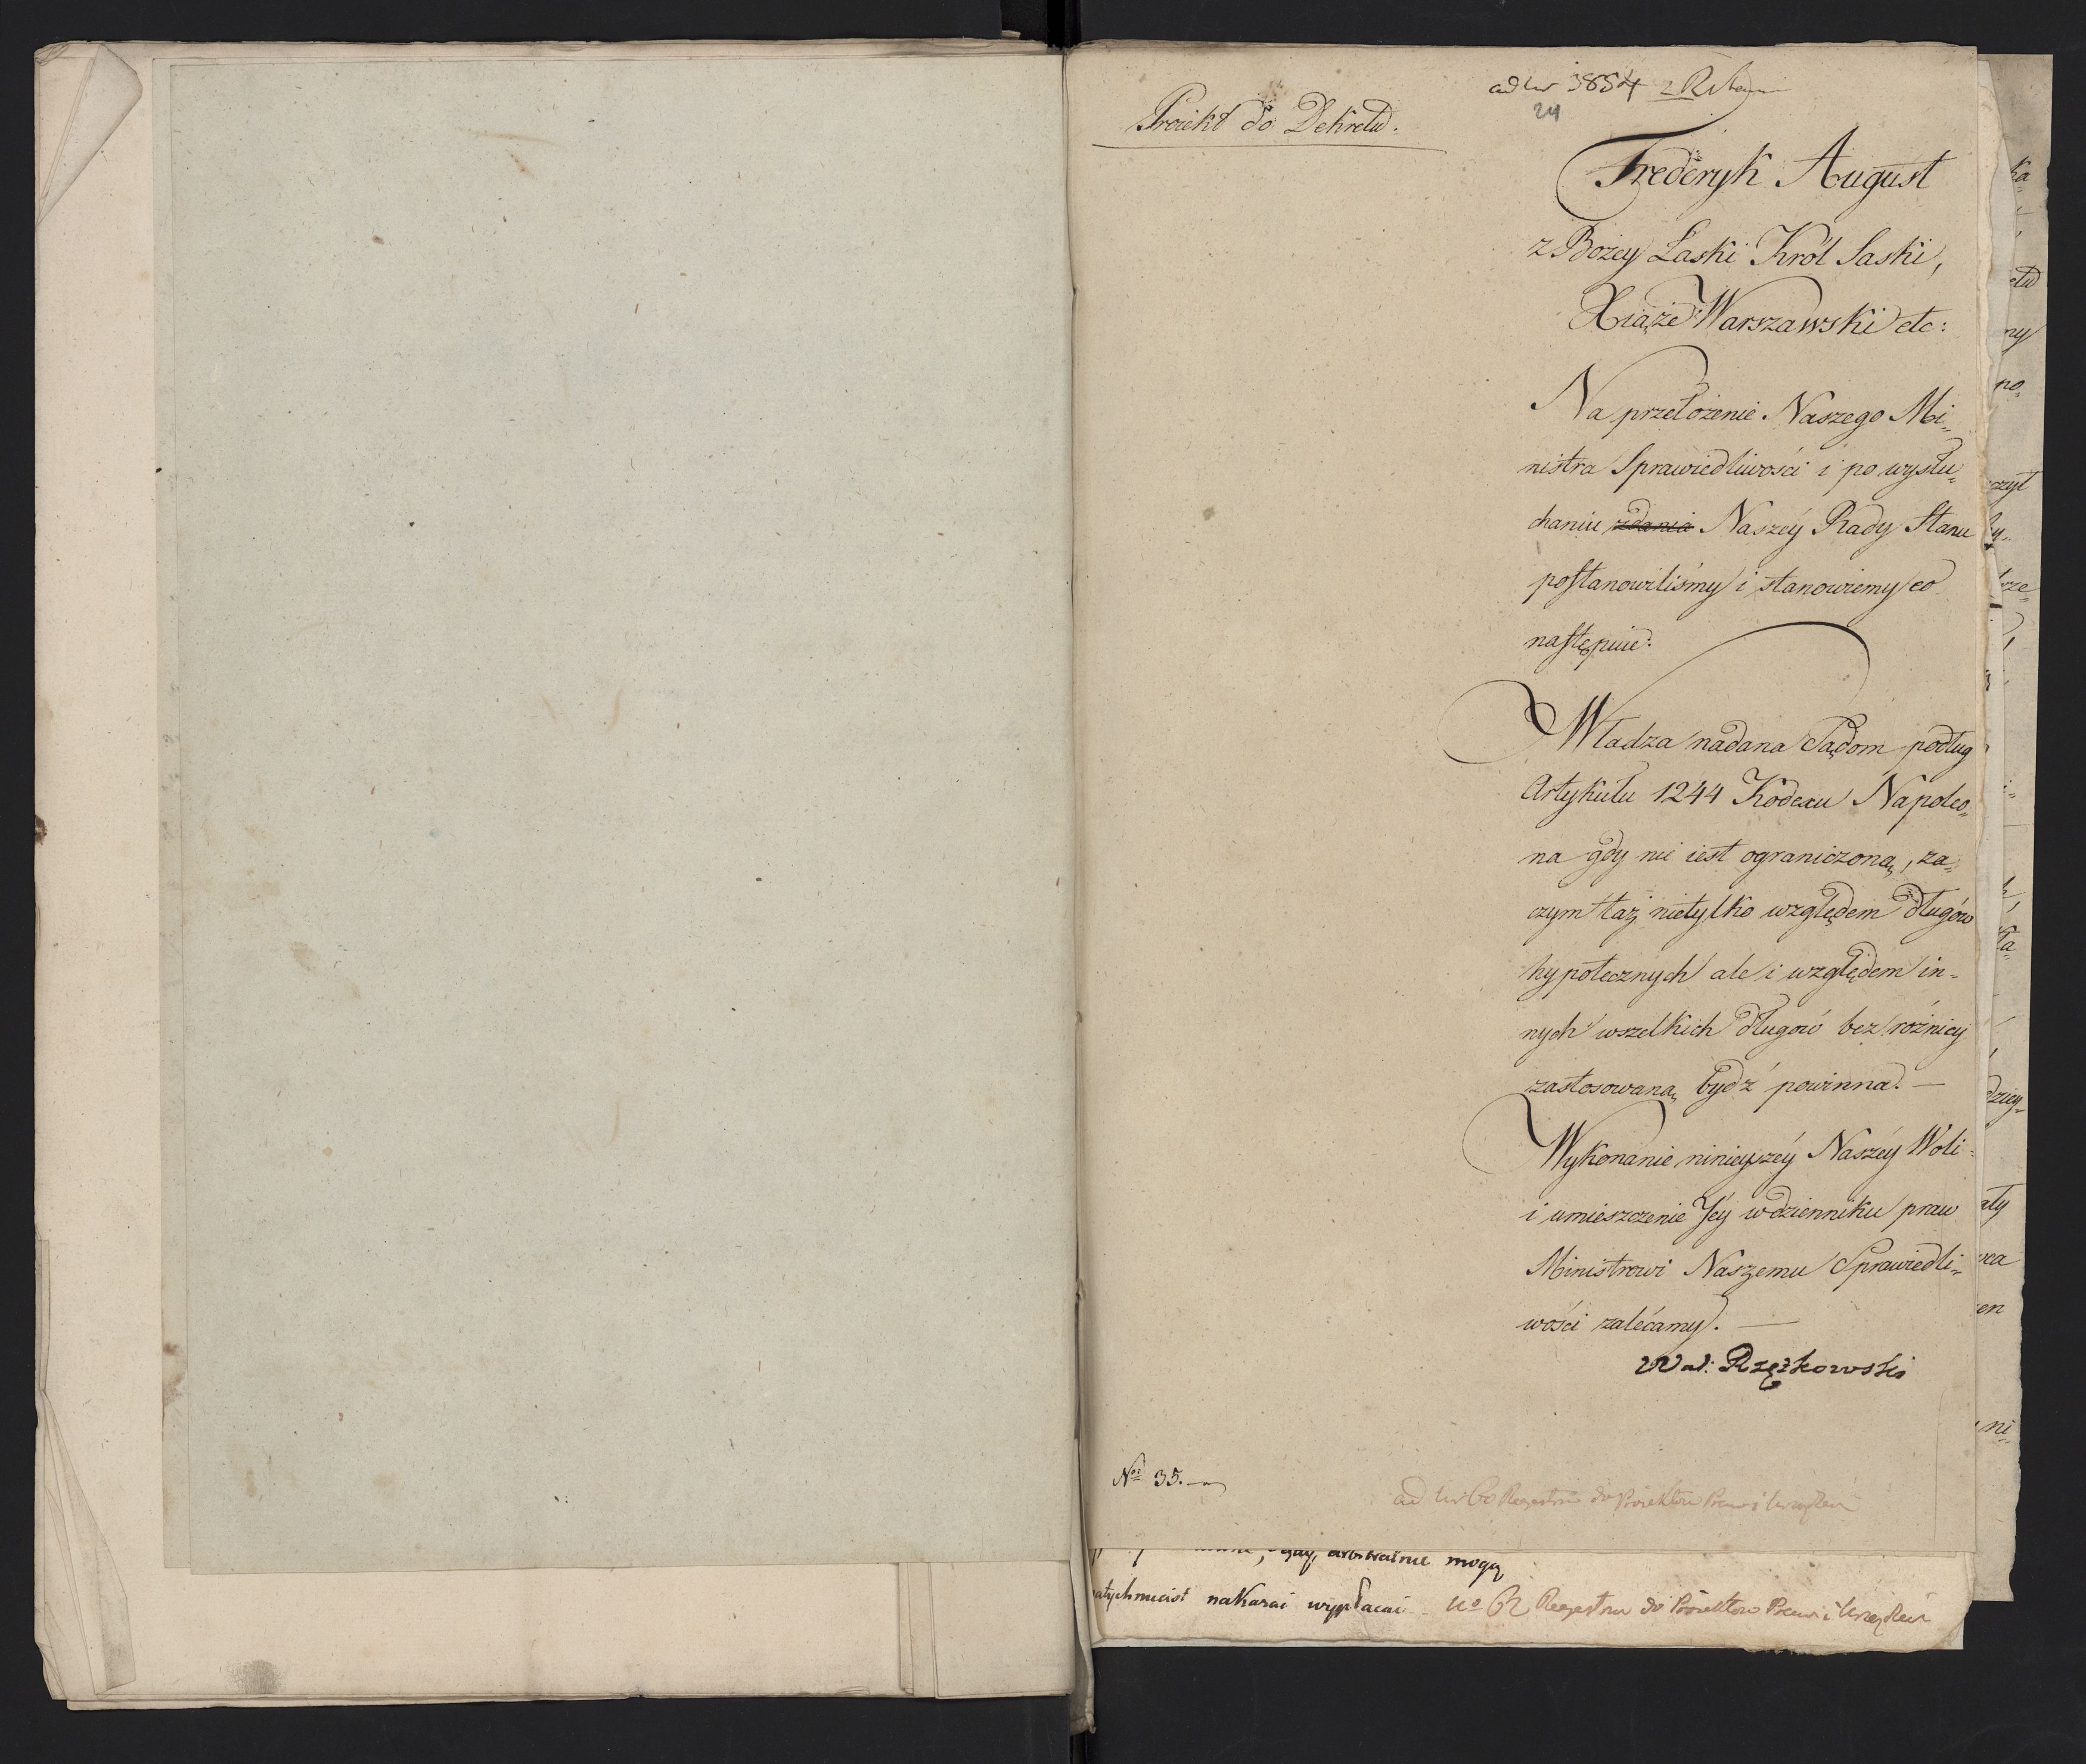 ad Nr 3854
24
Proiekt do Dekretu.
Frederyk August
z Bożey Łaski Król Saski,
Xiąże Warszawski etc:
Na przełożenie Naszego Mi„
nistra Sprawiedliwości i po wysłu„
chaniu zdania Naszéy Rady Stanu
postanowiliśmy i stanowiemy co
następuie:
Władza nadana Sądom podług
Artykułu 1244 Kodexu Napoleo„
na gdy nie iest ograniczoną, za„
czym taż nietylko względem długów
hypotecznych ale i względem in„
nych wszelkich długów bez różnicy
zastosowaną bydź powinna. —
Wykonanie ninieyszéy Naszéy Woli
i umieszczenie Jéy w dzienniku praw
Ministrowi Naszemu Sprawiedli„
wości zalécamy. —
Wal: Rzężkowski
No: 35.
ad Nr 60 Regestru do Proiektów Praw i Urządzeń
arbitralnie mogą
natychmiast nakazać wypłacać
No 62 Regestru do Proiektow Praw i Urządzeń